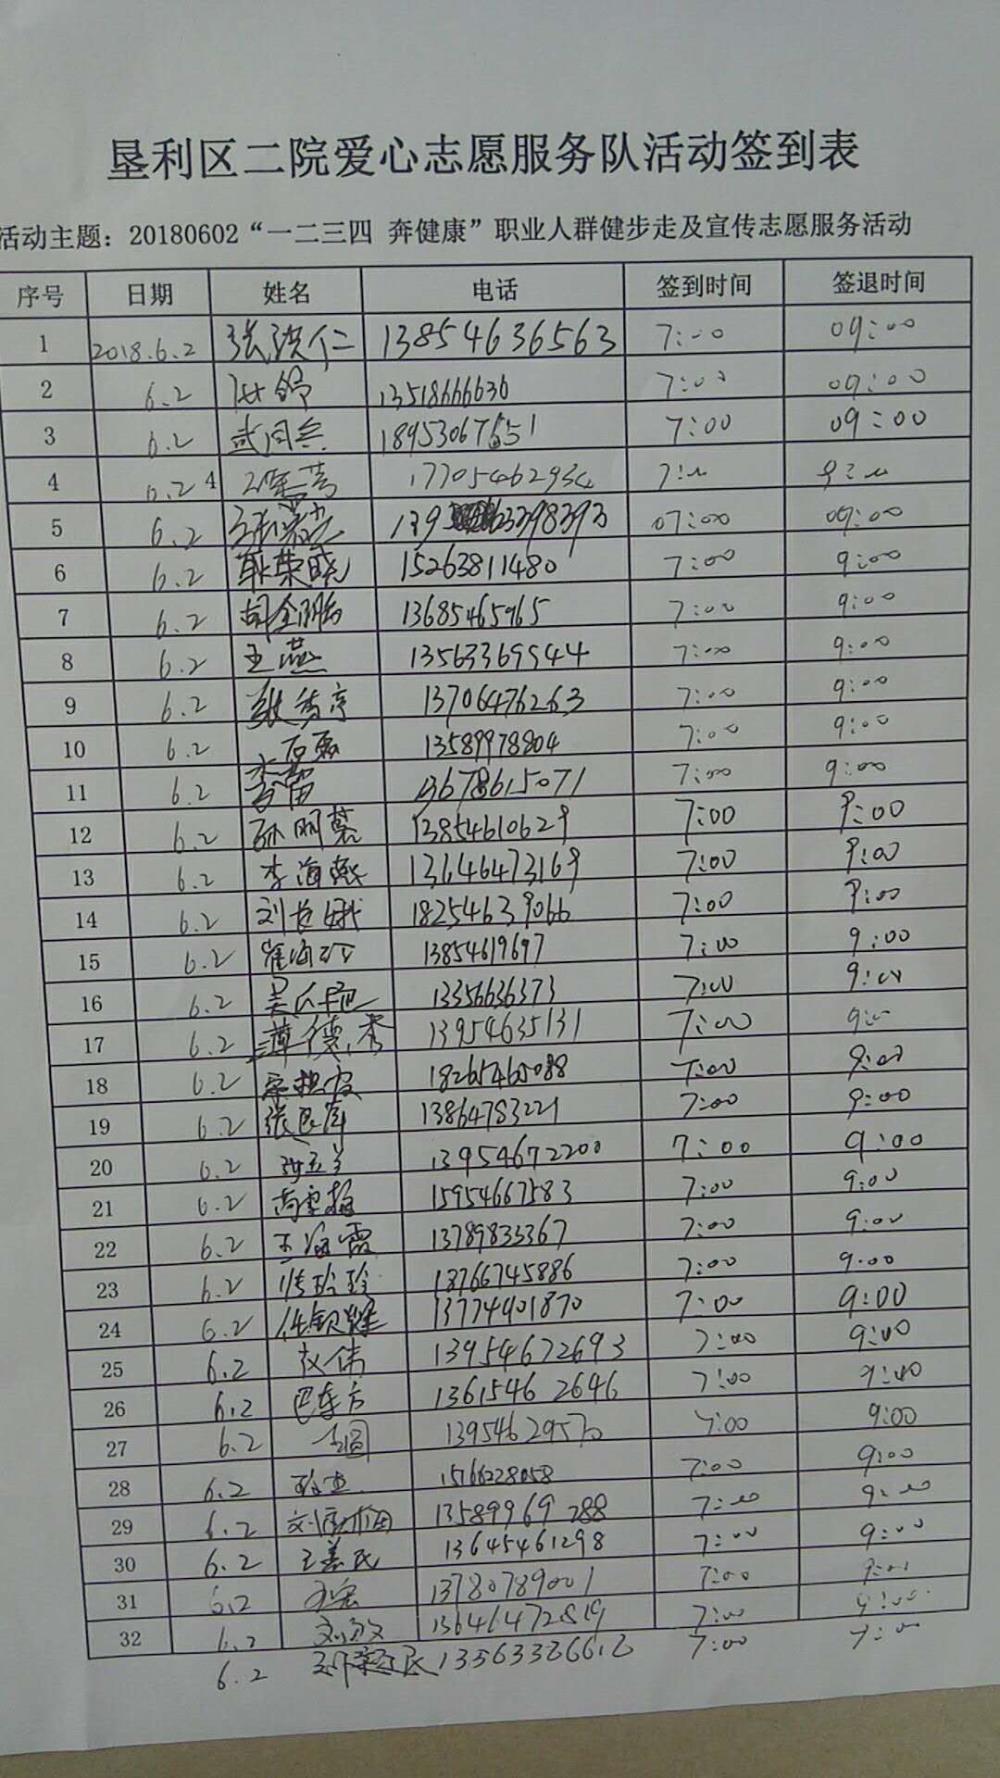 垦利区二院爱心志愿服务队活动签到表
活动主题：20180602“一二三四 奔健康”职业人群健步走及宣传志愿服务活动
序号 日期 姓名 电话 签到时间 签退时间
1 2018.6.2 13854636563 7:00 09:00
2 6.2 13518666636 7:00 09:00
3 6.2 武同兵 18953067651 7:00 09:00
4 6.2 4 7:00 9:00
5 6.2 07:00 09:00
6 6.2 耿荣晓 15263811480 7:00 9:00
7 6.2 13685465965 7:00 9:00
8 6.2 王燕 13563369544 7:00 9:00
9 6.2 13706476263 7:00 9:00
10 6.2 13589978804 7:00 9:00
11 6.2 李雷 13678615071 7:00 9:00
12 6.2 孙明慧 13854610629 7:00 9:00
13 6.2 李海燕 13646473169 7:00 9:00
14 6.2 18254639066 7:00 9:00
15 6.2 13854619697 7:00 9:00
16 6.2 13356636373 7:00 9:00
17 6.2 薄德秀 13954635131 7:00 9:00
18 6.2 18265465088 7:00 9:00
19 6.2 13864783221 7:00 9:00
20 6.2 13954672200 7:00 9:00
21 6.2 尚雪梅 15954667583 7:00 9:00
22 6.2 王海霞 13789833367 7:00 9:00
23 6.2 18766745886 7:00 9:00
24 6.2 13774901870 7:00 9:00
25 6.2 赵伟 13954672693 7:00 9:00
26 6.2 巴东方 13615462646 7:00 9:00
27 6.2 7:00 9:00
28 6.2 15766228058 7:00 9:00
29 6.2 13589969288 7:00 9:00
30 6.2 王善民 13645461298 7:00 9:00
31 6.2 13780789001 7:00 9:00
32 6.2 刘敏 13646472819 7:00 9:00
6.2 13563326612 7:00 9:00